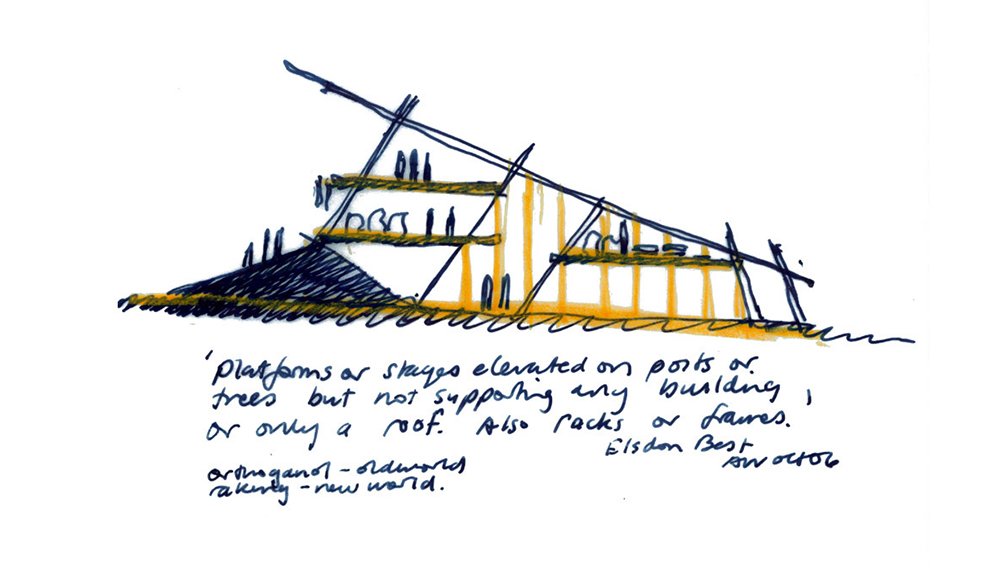 'Platforms or stages elevated on posts or
trees but not supporting any building,
or only a roof. Also racks or frames.
Elsdon Best
AW Oct 06
orthoganol - oldworld
rakerly - new world.